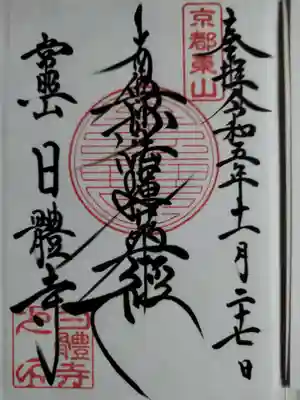 京都東山
参拝令和五年十一月二十七日
南無妙法蓮華經
常照山 日體寺
日體寺之印